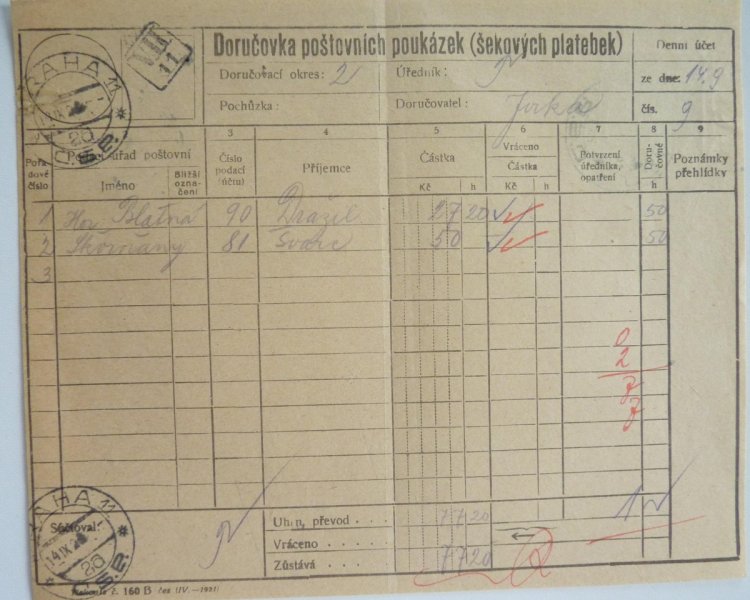 PRAHA 11
Doručovka poštovních poukázek (šekových platebek)
Denní účet
Doručovací okres: 2
Úředník:
ze dne: 14.9
Pochůzka:
Doručovatel:
čís. 9
3 4 5 6 7 8 9
Pořadové číslo
úřad poštovní
Jméno
Bližší označení
Číslo podací (účtu)
Příjemce
Částka
Kč h
Vráceno
Částka
Kč h
Potvrzení úředníka, opatření
Doručovné
h
Poznámky přehlídky
1 Hor. Blatná 90 Dražil 27 20 50
2 81 Švarc 50 50
3
0
2
7
7
PRAHA 11
Súčtoval:
14 IX 2
Úhrn, převod . . . 77 20
Vráncno . . . .
Zůstává . . . . 77 20
č. 160 B čes (IV.—1921)